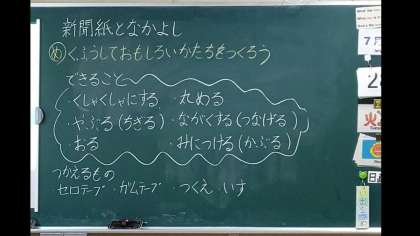 新聞紙となかよし
め くふうしておもしろいかたちをつくろう
できること
・くしゃくしゃにする ・丸める
・やぶる(ちぎる) ・ながくする(つなげる)
・おる ・みにつける(かぶる)
つかえるもの
・セロテープ ・ガムテープ ・つくえ ・いす
7月
火